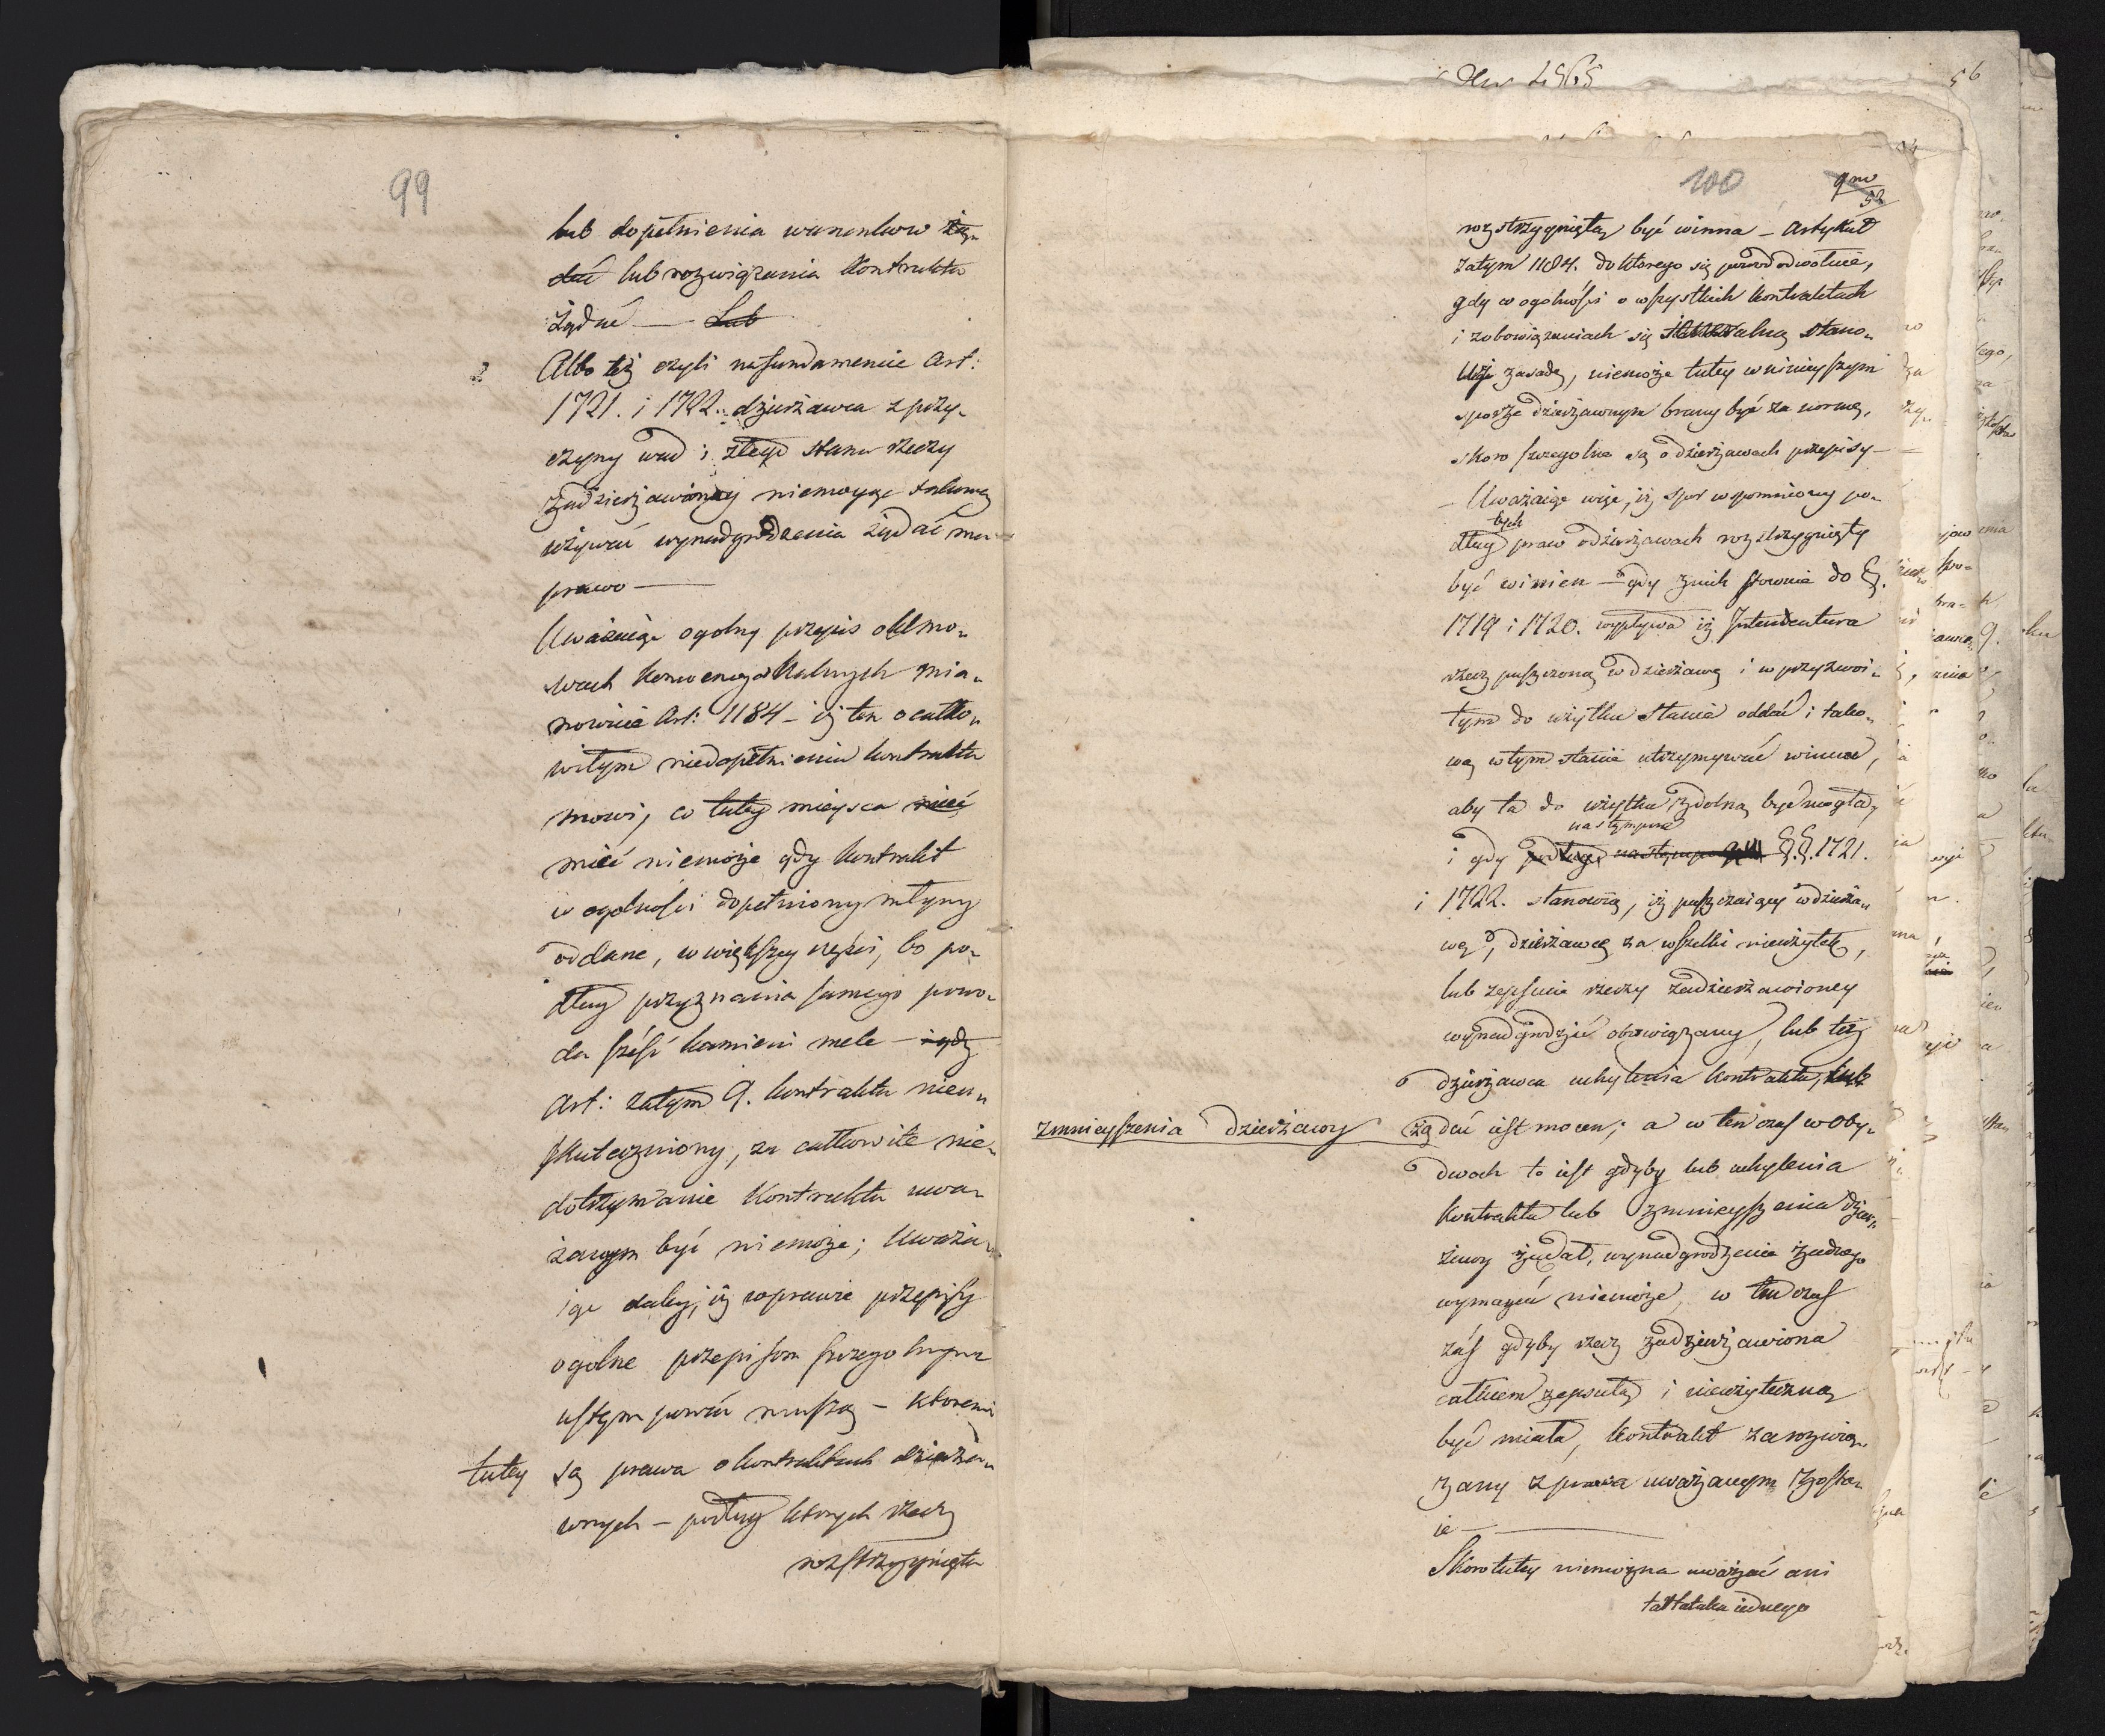 99
lub dopełnienia warunkow żą„
dać lub rozwiązania Kontraktu
żądać — Lub
2 Albo też czyli na fundamencie Art:
1721. i 1722. dzierżawca z przy„
czyny wad i złego stanu rzeczy
zadzierżawioney niemogąc takowey
używać wynadgrodzenia żądać ma
prawo —
Uważaiąc ogolny przepis o Umo„
wach Konwencyonalnych mia„
nowicie Art: 1184 – iż ten o całko„
witym niedopełnieniu kontraktu
mowi, co tutey mieysca mieć
mieć niemoże gdy kontrakt
w ogolności dopełniony młyny
oddane, w większey części, bo po„
dług przyznania samego powo„
da sześć kamieni mele — i gdy
Art: zatym 9. kontraktu nieu„
skuteczniony, za całkowite nie„
dotrzymanie Kontraktu uwa„
żanym być niemoże; Uważa„
iąc daley, iż w prawie przepisy
ogolne przepisom szczegolnym
ustępować muszą – ktoremi
tutey są prawa o kontraktach dzierża„
wnych – podług ktorych rzecz
rozstrzygnięta
100
rozstrzygniętą być winna – Artykuł
zatym 1184. do ktorego się powod odwołuie,
gdy w ogolności o wszystkich kontraktach
i zobowiązaniach się stano„
wiąc zasadę, niemoże tutey w ninieyszym
sporze dzierżawnym brany być za normę,
skoro szczegolne są o dzierżawach przepisy –
– Uważaiąc więc, iż spor wspomniony po„
tych
dług praw o dzierżawach rozstrzygnięty
być winien – gdy z nich stosownie do §.
1719 i 1720. wypływa iż Intendentura
rzecz puszczoną w dzierżawę i w przyzwoi„
tym do użytku stanie oddać i tako„
wą w tym stanie utrzymywać winna,
aby ta do użytku zdolną być mogła,
następne
i gdy podług następnych §.§. 1721.
i 1722. stanowią, iż puszczaiący w dzierża„
wę, dzierżawcę za wszelki nieużytek,
lub zepsucie rzeczy zadzierżawioney
wynadgrodzić obowiązany, lub też
dzierżawca uchylenia kontraktu, lub
zmnieyszenia dzierżawy żądać iest mocen; a w ten czas w oby„
dwoch to iest gdyby lub uchylenia
kontraktu lub zmnieyszenia dzier„
żawy żądał, wynadgrodzenia żadnego
wymagać niemoże, w ten czas
zaś gdyby rzecz zadzierżawiona
całkiem zepsutą i nieużyteczną
być miała, kontrakt za rozwią„
zany z prawa uważanym zosta„
ie —
Skoro tutey niemożna uważać ani
tartaka iednego
56